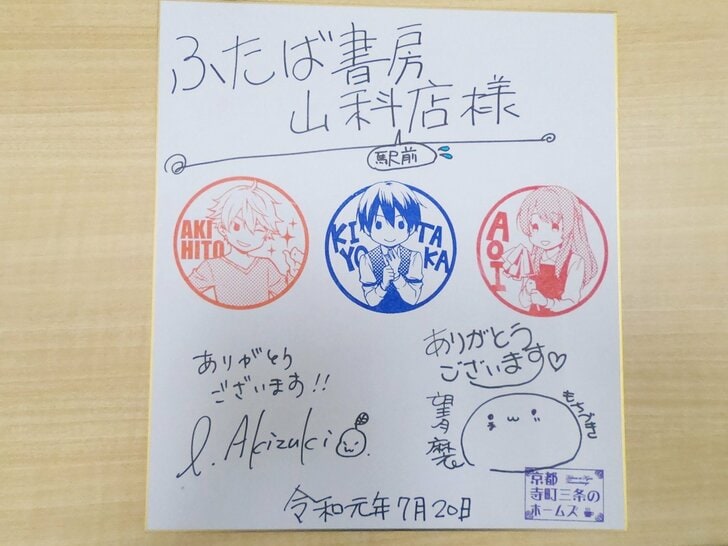 ふたば書房
山科店様
駅前
AKI
HITO
KI
YO
TA
KA
AOI
ありがとう
ございます!!
ありがとう
ございます♡
l. Akizuki
望月麻衣
もちづき
京都
寺町三条の
ホームズ
令和元年7月20日